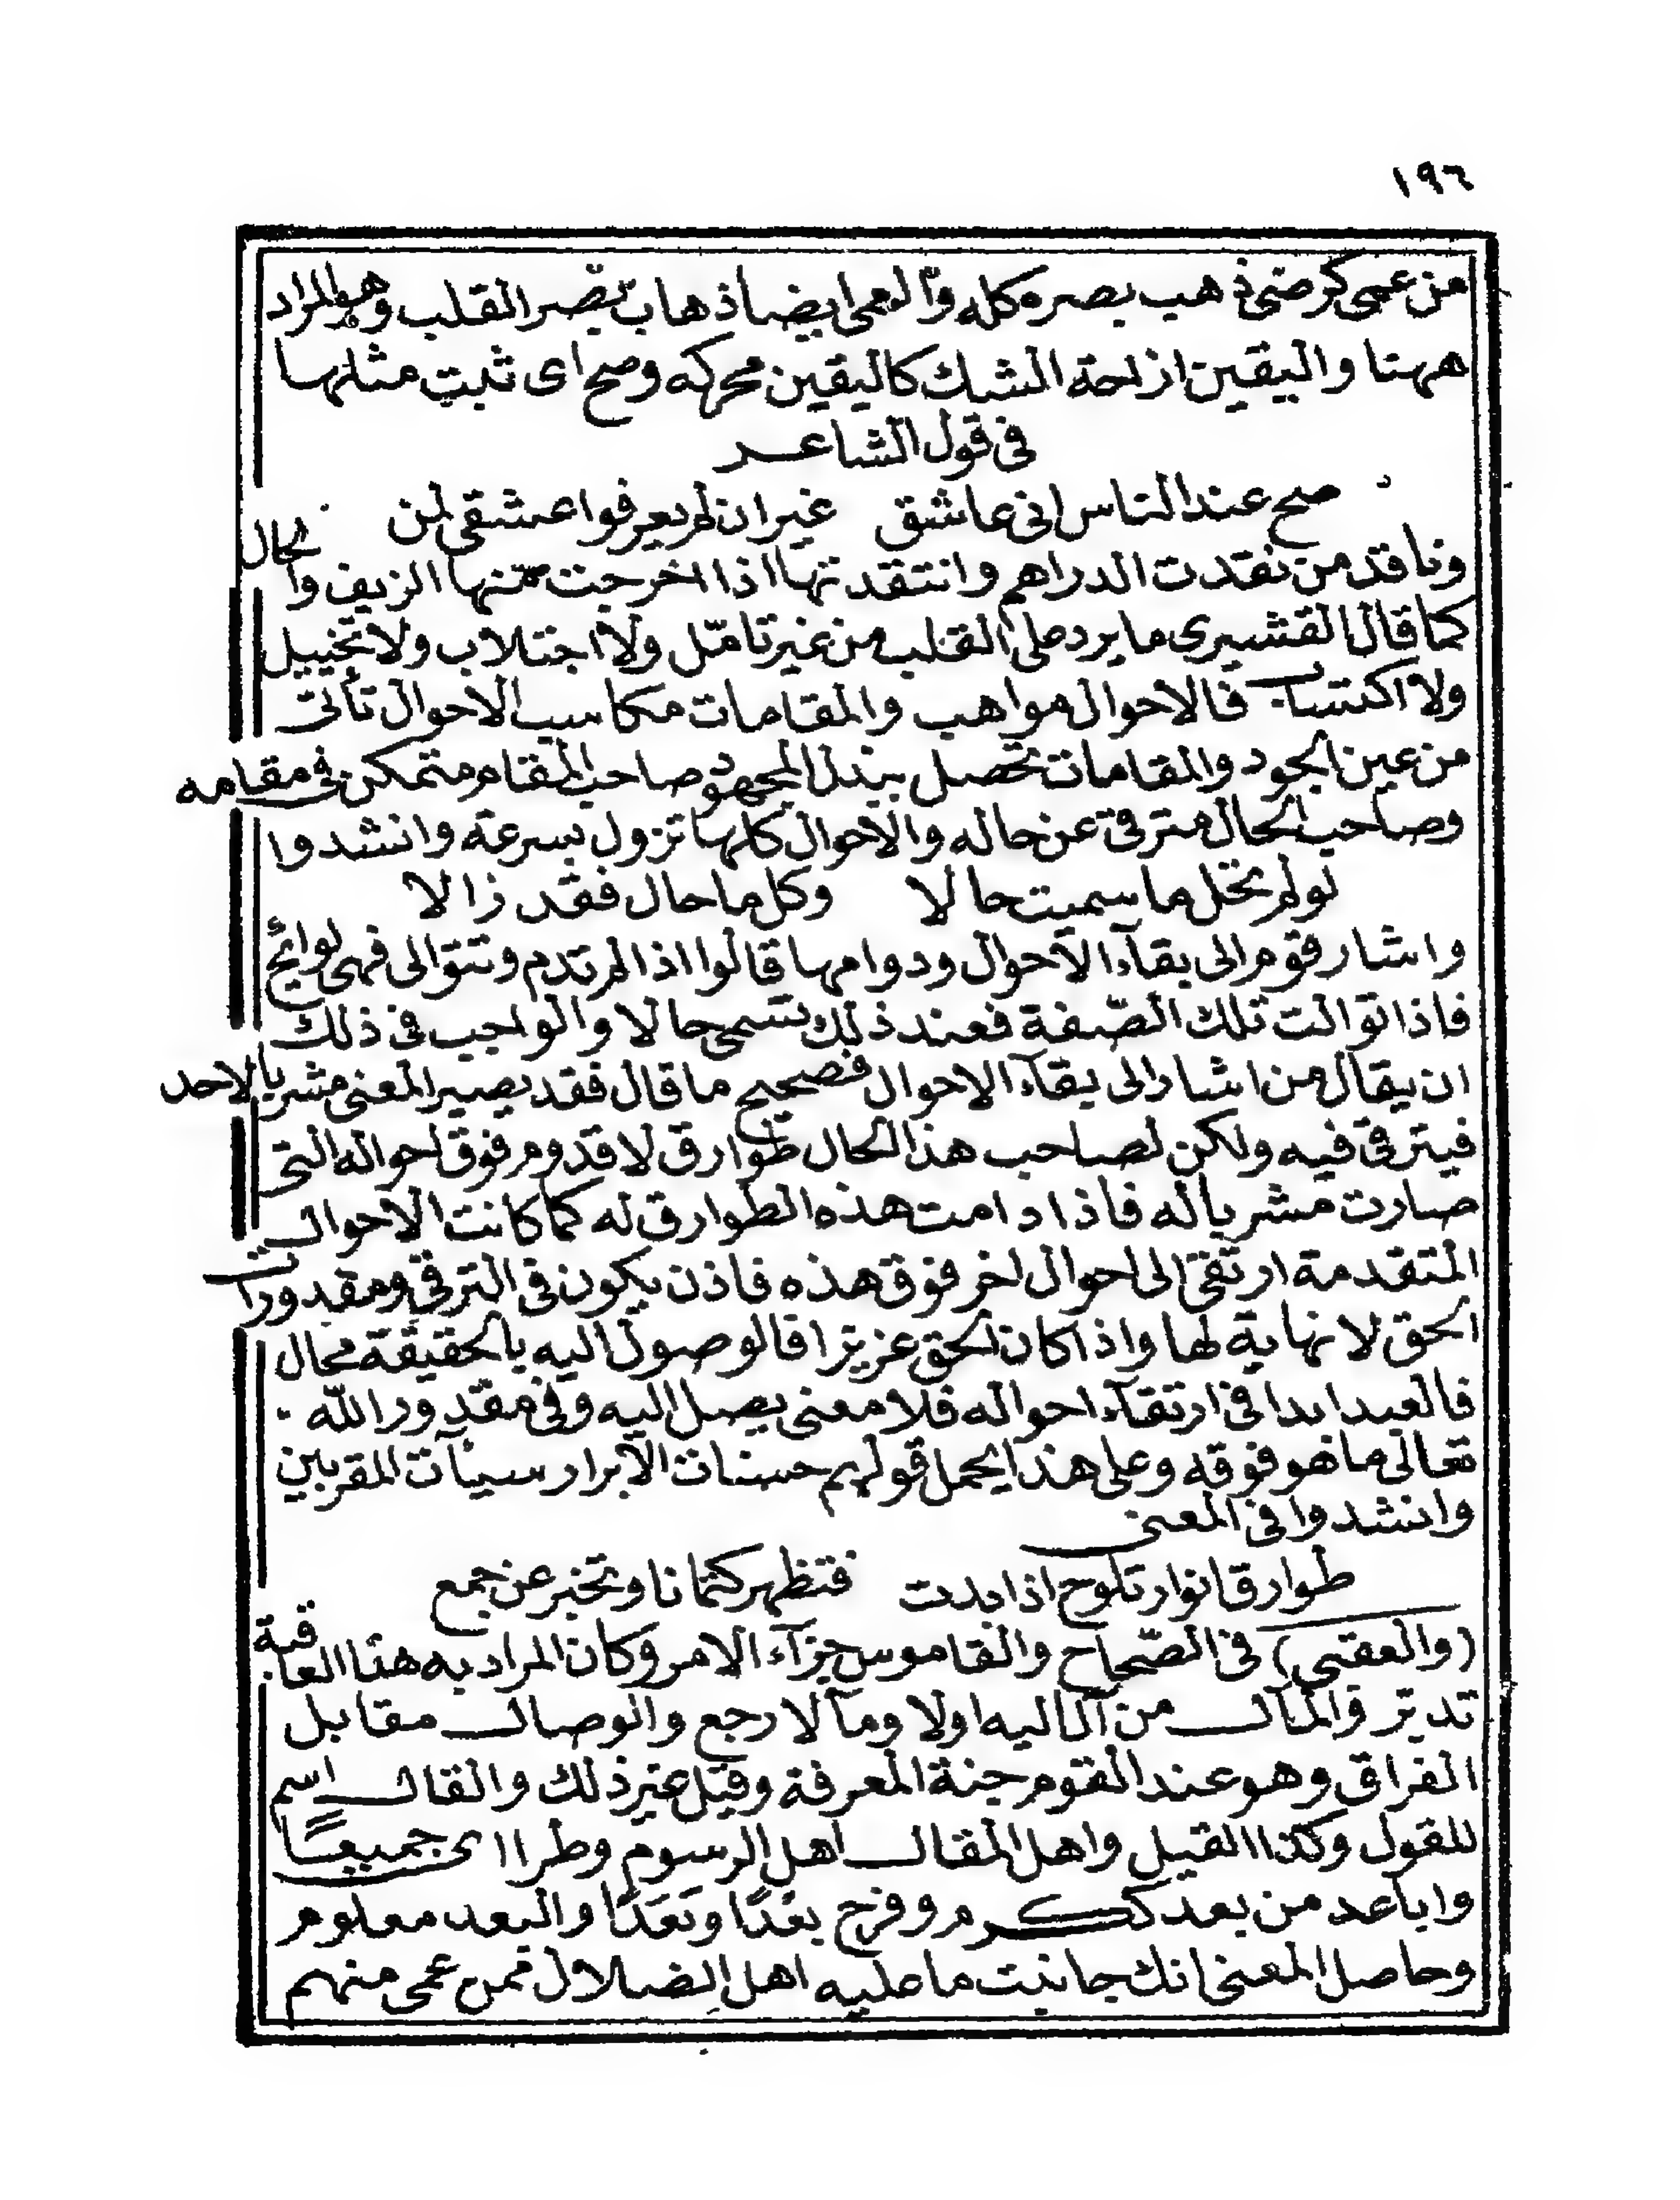 ١٩٦
من عمى كرضى ذهب بصره كله والعمى ايضا ذهاب بصر القلب وهو المراد
ههنا واليقين ازاحة الشك كاليقين محركه وصح اى ثبت مثلها
فى قول الشاعر
صح عند الناس انى عاشق غير ان لم يعرفوا عشقى لمن
وناقد من نقدت الدراهم وانتقدتها اذا اخرجت منها الزيف والحال
كما قال القشيرى ما يرد على القلب من غير تامّل ولا اجتلاب ولا تخييل
ولا اكتساب فالاحوال مواهب والمقامات مكاسب الاحوال تأتى
من عين الجود والمقامات تحصل ببذل المجهود صاحب المقام متمكن فى مقامه
وصاحب الحال مترق عن حاله والاحوال كلها تزول بسرعة وانشدوا
لو لم تحل ما سميت حالا وكل ما حال فقد زالا
واشار قوم الى بقآء الاحوال ودوامها قالوا اذا لم تدم وتتوالى فهى لوائح
فاذا توالت تلك الصّفة فعند ذلك تسمى حالا والواجب فى ذلك
ان يقال من اشار الى بقآء الاحوال فصحيح ما قال فقد يصير المعنى مشربا لاحد
فيترقى فيه ولكن لصاحب هذا الحال طوارق لا قدوم فوق احواله التى
صارت مشربا له فاذا دامت هذه الطوارق له كما كانت الاحوال
المتقدمة ارتقى الى احوال اخر فوق هذه فاذن يكون فى الترقى ومقدورات
الحق لا نهاية لها واذا كان الحق عزيزا فالوصول اليه بالحقيقة محال
فالعبد ابدا فى ارتقآء احواله فلا معنى يصل اليه وفى مقدور الله
تعالى ما هو فوقه وعلى هذا يحمل قولهم حسنات الابرار سيئآت المقربين
وانشدوا فى المعنى
طوارق انوار تلوح اذا بدت فتظهر كتمانا وتخبر عن جمع
(والعقبى) فى الصّحاح والقاموس جزآء الامر وكان المراد به هنا العاقبة
تدبّر والمآل من آل اليه اولا ومآلا رجع والوصال مقابل
الفراق وهو عند القوم جنة المعرفة وقيل غير ذلك والقال اسم
للقول وكذا القيل واهل المقال اهل الرسوم وطرا اى جميعًا
واباعد من بعد ككرم وفرح بعْدًا وبَعَدًا والبعد معلوم
وحاصل المعنى انك جانبت ما عليه اهل الضلال فمن عمى منهم